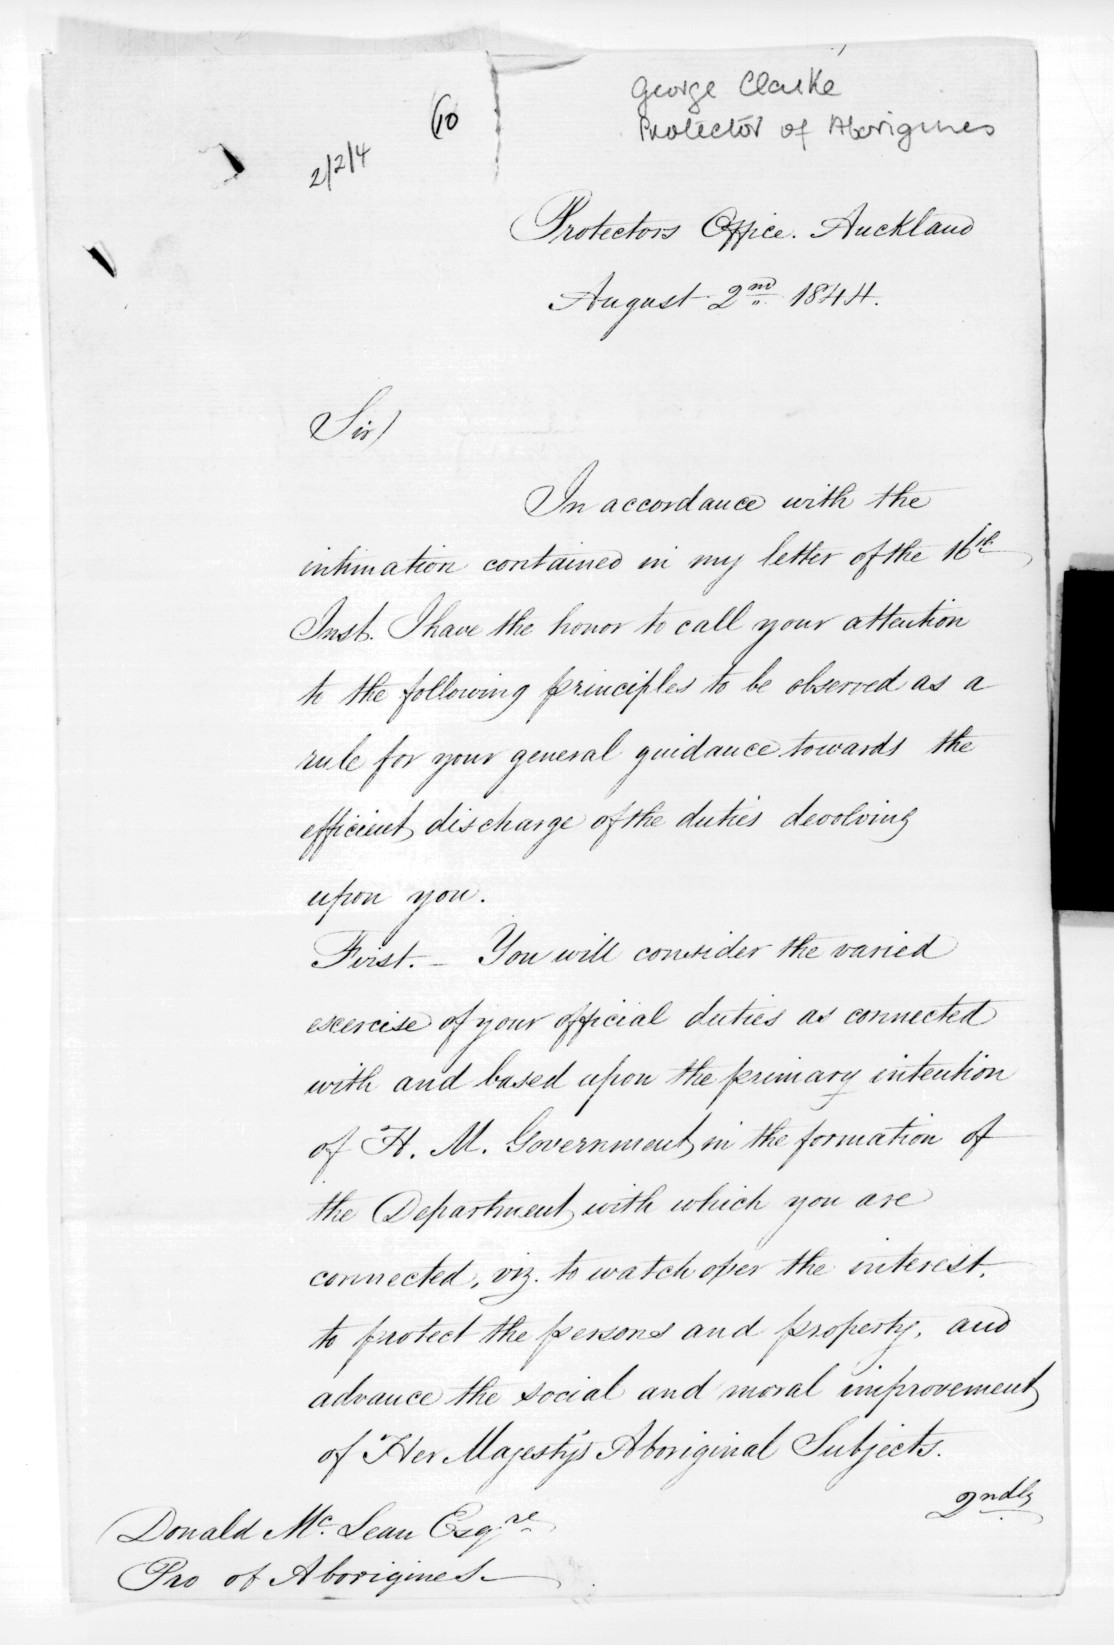 George Clarke
Protector of Aborigines
(10
2/2/4
Protectors Office. Auckland
August 2nd 1844.
Sir)
In accordance with the
intimation contained in my letter of the 16th
Inst. I have the honor to call your attention
to the following principles to be observed as a
rule for your general guidance towards the
efficient discharge of the duties devolving
upon you.
First. – You will consider the varied
exercise of your official duties as connected
with and based upon the primary intention
of H. M. Government in the formation of
the Department with which you are
connected, viz. to watch over the interest,
to protect the persons and property, and
advance the social and moral improvement
of Her Majesty's Aboriginal Subjects.
2ndly
Donald Mc. Lean Esqre
Pro of Aborigines